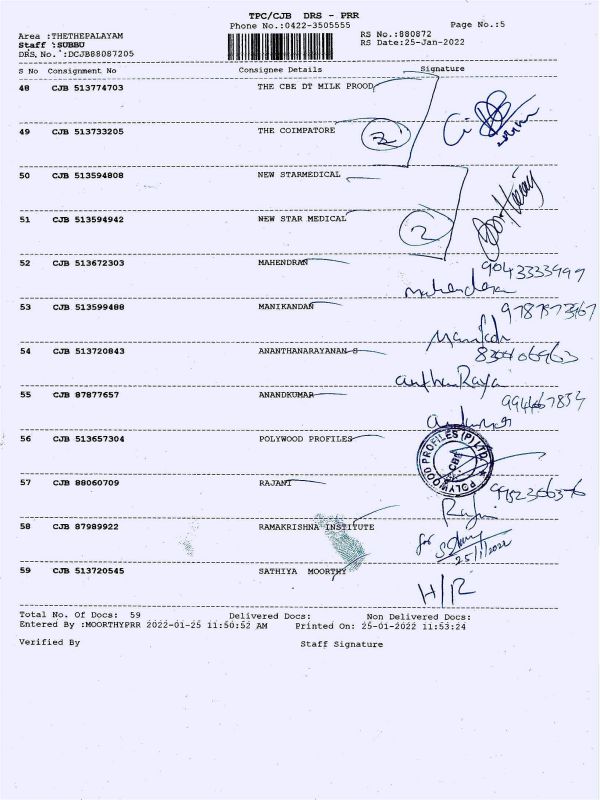 TPC/CJB DRS - PRR
Phone No.:0422-3505555
Page No.:5
Area :THETHEPALAYAM
RS No.:880872
Staff :SUBBU
RS Date:25-Jan-2022
DRS, No. :DCJB88087205
S No Consignment No Consignee Details Signature
48 CJB 513774703 THE CBE DT MILK PROOD
49 CJB 513733205 THE COIMPATORE 2
50 CJB 513594808 NEW STARMEDICAL
51 CJB 513594942 NEW STAR MEDICAL 2
52 CJB 513672303 MAHENDRAN 9043333999
53 CJB 513599488 MANIKANDAN
54 CJB 513720843 ANANTHANARAYANAN S
55 CJB 87877657 ANANDKUMAR
56 CJB 513657304 POLYWOOD PROFILES
POLYWOOD PROFILES (P) LTD. CBE
57 CJB 88060709 RAJANI
Rajni
58 CJB 87989922 RAMAKRISHNA INSTITUTE for
25/1/2022
59 CJB 513720545 SATHIYA MOORTHY H/R
Total No. Of Docs: 59 Delivered Docs: Non Delivered Docs:
Entered By :MOORTHYPRR 2022-01-25 11:50:52 AM Printed On: 25-01-2022 11:53:24
Verified By Staff Signature